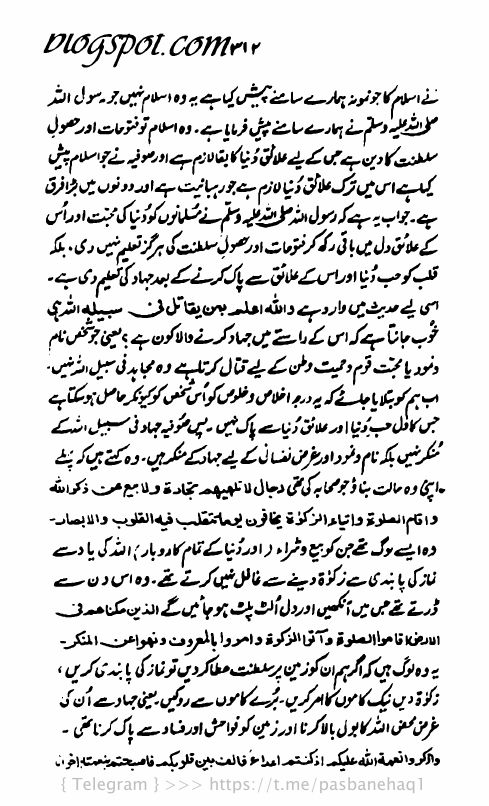 blogspot.com ۳۱۲
نے اسلام کا جو نمونہ ہمارے سامنے پیش کیا ہے یہ وہ اسلام نہیں جو رسول اللہ
صلی اللہ علیہ وسلم نے ہمارے سامنے پیش فرمایا ہے۔ وہ اسلام تو فتوحات اور حصولِ
سلطنت کا دین ہے جس کے لیے علائقِ دُنیا کا بقا لازم ہے اور صوفیہ نے جو اسلام پیش
کیا ہے اس میں ترک علائق دُنیا لازم ہے جو رہبانیت ہے اور دونوں میں بڑا فرق
ہے۔ جواب یہ ہے کہ رسول اللہ صلی اللہ علیہ وسلم نے مُسلمانوں کو دُنیا کی محبّت اور اُس
کے علائق دل میں باقی رکھ کر فتوحات اور حصولِ سلطنت کی ہرگز تعلیم نہیں دی، بلکہ
قلب کو حب دُنیا اور اس کے علائق سے پاک کرنے کے بعد جہاد کی تعلیم دی ہے۔
اسی لیے حدیث میں وارد ہے واللہ اعلم بمن یقاتل فی سبیلہ اللہ ہی
خُوب جانتا ہے کہ اس کے راستے میں جہاد کرنے والا کون ہے؟ یعنی جو شخص نام
ونمود یا محبّت قوم و حمیت وطن کے لیے قتال کرتا ہے وہ مجاہد فی سبیل اللہ نہیں۔
اب ہم کو بتلایا جائے کہ یہ درجۂ اخلاص و خلوص کو اُس شخص کو کیونکر حاصل ہو سکتا ہے
جس کا دل حب دُنیا اور علائق دُنیا سے پاک نہیں۔ پس صُوفیہ جہاد فی سبیل اللہ کے
مُنکر نہیں بلکہ نام و نمود اور غرض نفسانی کے لیے جہاد کے منکر ہیں۔ وہ کہتے ہیں کہ پہلے
اپنی وہ حالت بناؤ جو صحابہ کی تھی رجال لا تلھیھم تجارۃ ولا بیع عن ذکر اللہ
واقام الصلوۃ وایتاء الزکوۃ یخافون یوما تتقلب فیہ القلوب والابصار۔
وہ ایسے لوگ تھے جن کو بیع و شراء (اور دُنیا کے تمام کاروبار) اللہ کی یاد سے
نماز کی پابندی سے زکوٰۃ دینے سے غافل نہیں کرتے تھے۔ وہ اس دن سے
ڈرتے تھے جس میں آنکھیں اور دل اُلٹ پلٹ ہو جائیں گے الذین مکناھم فی
الارض اقاموا الصلوۃ وآتوا الزکوۃ وامروا بالمعروف ونھوا عن المنکر۔
یہ وہ لوگ ہیں کہ اگر ہم ان کو زمین پر سلطنت عطا کر دیں تو نماز کی پابندی کریں،
زکوٰۃ دیں نیک کاموں کا امر کریں۔ بُرے کاموں سے روکیں۔ یعنی جہاد سے اُن کی
غرض محض اللہ کا بول بالا کرنا اور زمین کو فواحش اور فساد سے پاک کرنا تھی۔
واذکروا نعمۃ اللہ علیکم اذ کنتم اعداء فالف بین قلوبکم فاصبحتم بنعمتہ اخوانا
{ Telegram } >>> https://t.me/pasbanehaq1